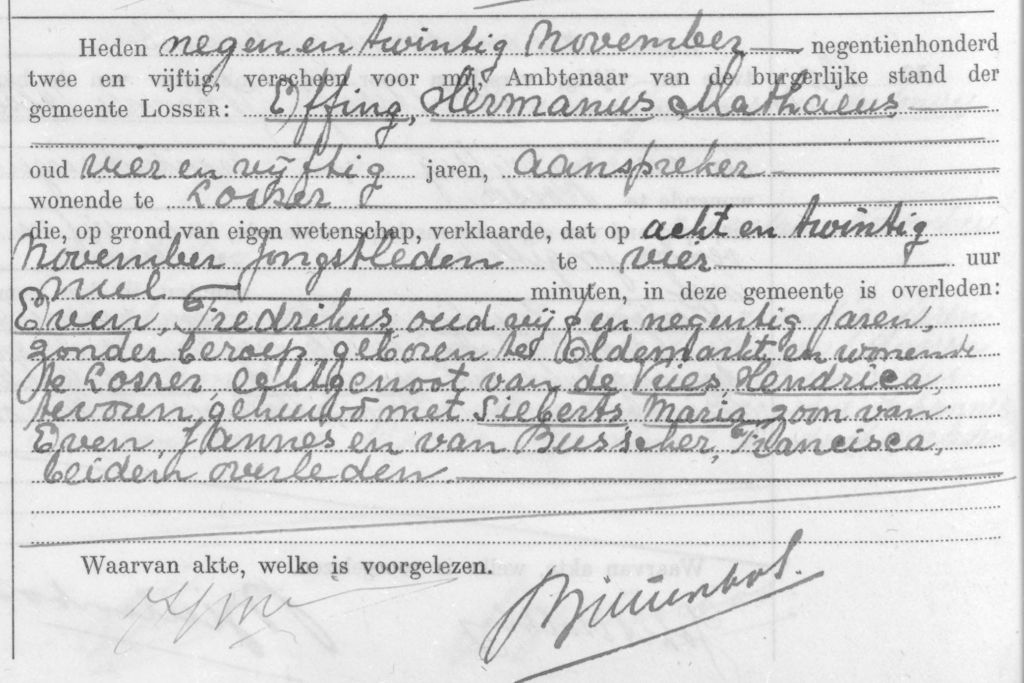 Heden negen en twintig November negentienhonderd
twee en vijftig, verscheen voor mij, Ambtenaar van de burgerlijke stand der
gemeente LOSSER: Effing, Hermanus Mathaeus
oud vier en vijftig jaren, aanspreker
wonende te Losser
die, op grond van eigen wetenschap, verklaarde, dat op acht en twintig
November jongstleden te vier uur
nul minuten, in deze gemeente is overleden:
Even, Fredrikus oud vijf en negentig jaren,
zonder beroep, geboren te Oldemarkt en wonende
te Losser, echtgenoot van de Vries, Hendrica,
tevoren gehuwd met Sieberts, Maria, zoon van
Even, Hannes en van Busscher, Francisca,
beiden overleden.
Waarvan akte, welke is voorgelezen.